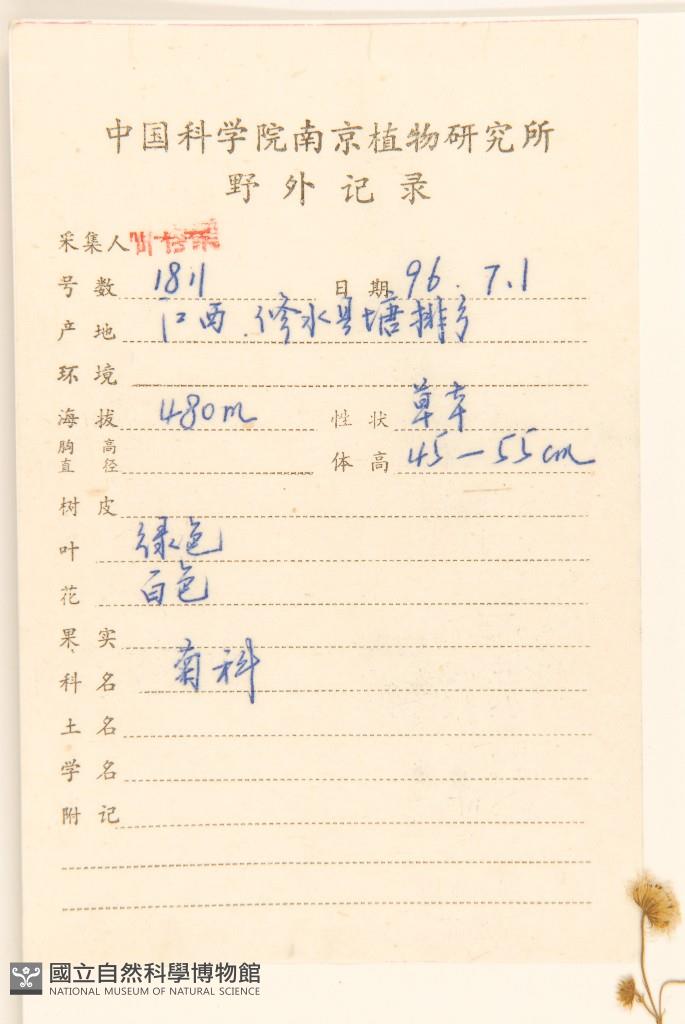 中国科学院南京植物研究所
野外记录
采集人
号数 1811 日期 96.7.1
产地 江西.修水县塘排乡
环境
海拔 480m 性状 草本
胸高直径 体高 45-55cm
树皮
叶 绿色
花 白色
果实
科名 菊科
土名
学名
附记
國立自然科學博物館
NATIONAL MUSEUM OF NATURAL SCIENCE